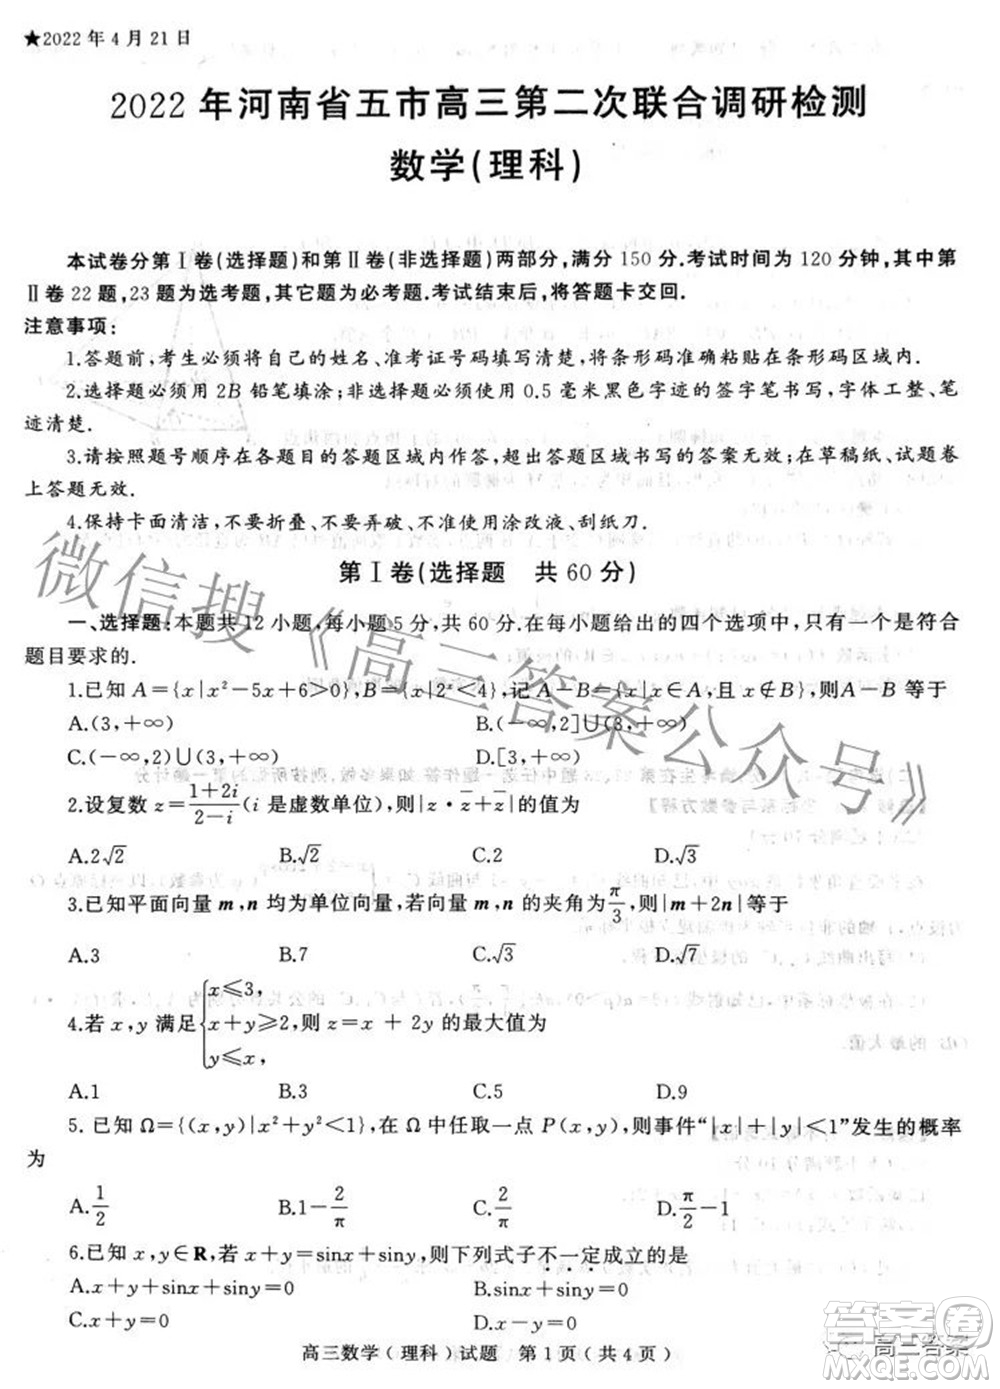 ★2022年4月21日
2022年河南省五市高三第二次联合调研检测
数学(理科)
本试卷分第Ⅰ卷(选择题)和第Ⅱ卷(非选择题)两部分,满分150分.考试时间为120分钟,其中第
Ⅱ卷22题,23题为选考题,其它题为必考题.考试结束后,将答题卡交回.
注意事项:
1.答题前,考生必须将自己的姓名、准考证号码填写清楚,将条形码准确粘贴在条形码区域内.
2.选择题必须用2B铅笔填涂;非选择题必须使用0.5毫米黑色字迹的签字笔书写,字体工整、笔
迹清楚.
3.请按照题号顺序在各题目的答题区域内作答,超出答题区域书写的答案无效;在草稿纸、试题卷
上答题无效.
4.保持卡面清洁,不要折叠、不要弄破、不准使用涂改液、刮纸刀.
第Ⅰ卷(选择题 共60分)
一、选择题:本题共12小题,每小题5分,共60分.在每小题给出的四个选项中,只有一个是符合
题目要求的.
1.已知A={x|x²-5x+6>0},B={x|2ˣ<4},记A-B={x|x∈A,且x∉B},则A-B等于
A.(3,+∞) B.(-∞,2]∪(3,+∞)
C.(-∞,2)∪(3,+∞) D.[3,+∞)
2.设复数z=(1+2i)/(2-i)(i是虚数单位),则|z·z̄+z̄|的值为
A.2√2 B.√2 C.2 D.√3
3.已知平面向量m,n均为单位向量,m,n的夹角为π/3,则|m+2n|等于
A.3 B.7 C.√3 D.√7
4.若x,y满足{x≤3, x+y≥2, y≤x, 则z=x+2y的最大值为
A.1 B.3 C.5 D.9
5.已知Ω={(x,y)|x²+y²<1},在Ω中任取一点P(x,y),则事件“|x|+|y|<1”发生的概率
为
A.1/2 B.1-2/π C.2/π D.π/2-1
6.已知x,y∈R,若x+y=sinx+siny,则下列式子不一定成立的是
A.x+y+sinx+siny=0 B.sinx+siny=0
C.x+y=0 D.x-y-sinx+siny=0
高三数学(理科)试题 第1页(共4页)
微信搜《高三答案公众号》
答案圈
高三答案
MXQE.COM